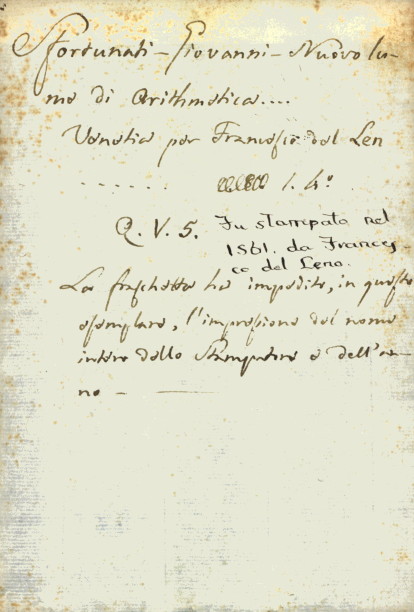 Sfortunati - Giovanni - Nuovo lu-
me di Arithmetica....
Venetia per Francesco del Len
...... 1. 4.º
Q. V. 5.
Fu stampato nel
1561. da Frances
co del Leno.
La fraschetta ha impedito, in questo
esemplare, l'impressione del nome
intero dello Stampatore e dell'an-
no -